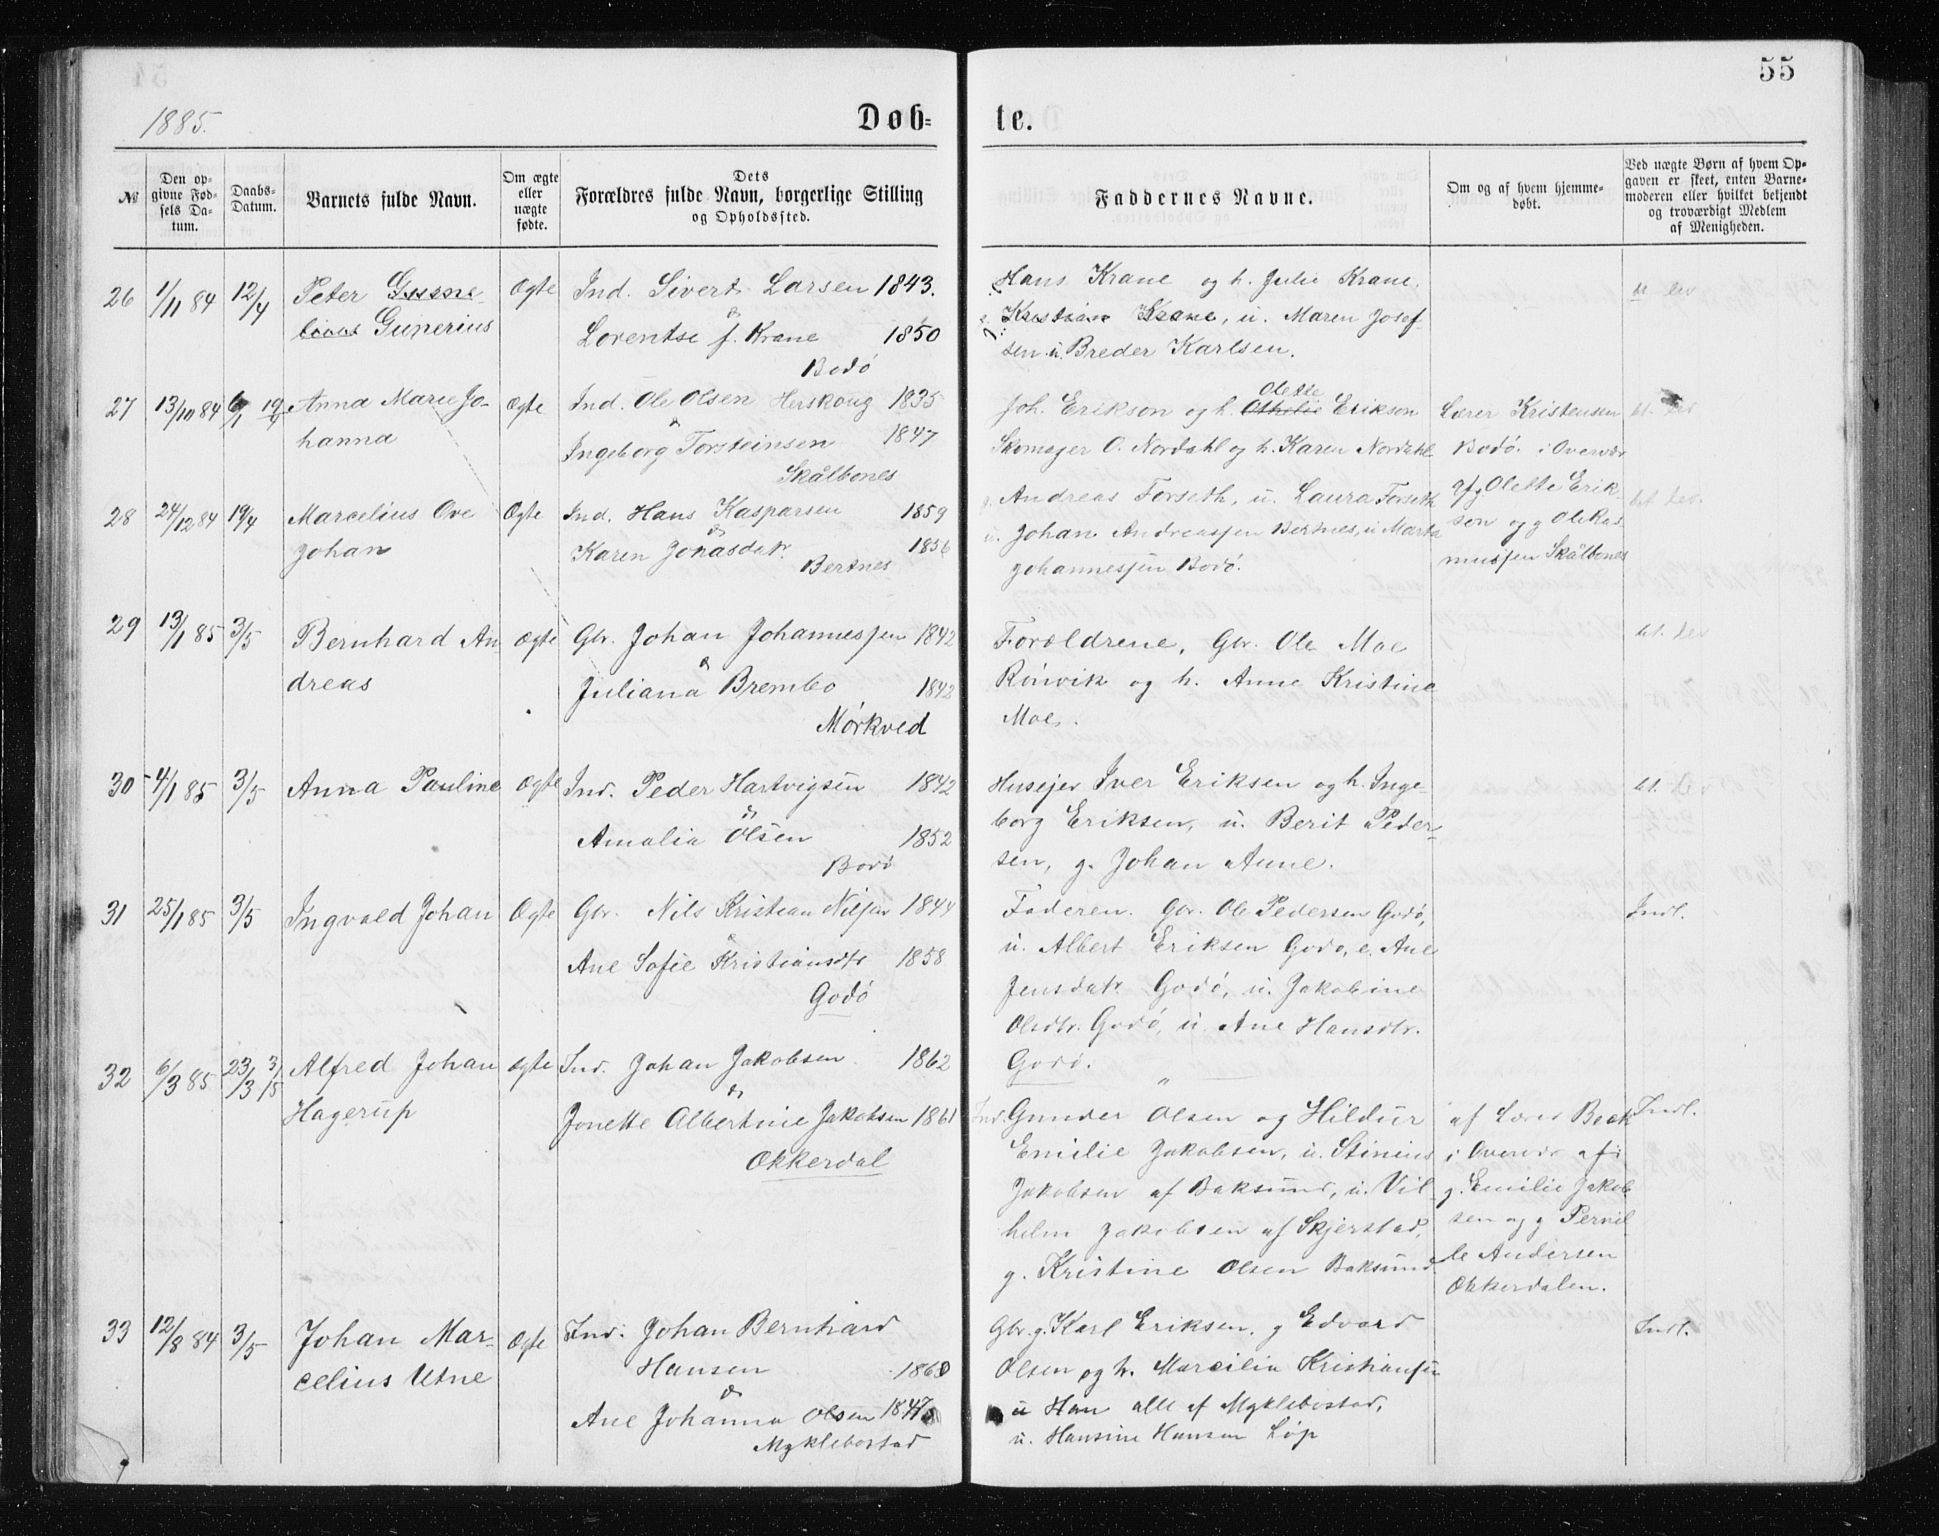 55
1885.
Døb-
te.
№
Den op-
givne Fød-
sels Da-
tum.
Daabs-
Datum.
Barnets fulde Navn.
Om ægte
eller
uægte
fødte.
Dets
Forældres fulde Navn, borgerlige Stilling
og Opholdssted.
Faddernes Navne.
Om og af hvem hjemme-
døbt.
Ved uægte Børn af hvem Op-
gaven er skeet, enten Barne-
moderen eller hvilket betjendt
og troværdigt Medlem
af Menigheden.
26 1/11 84 12/4 Peter
Gunerius
Ægte
Ind. Sivert Larsen 1843.
&
Lorentse f. Krane 1850
Bodó
Hans Krane og h. Julie Krane.
Kristian Krane, u. Maren Josef-
sen u. Breder Karlsen.
27 13/10 84 19/4 Anna Marie Jo-
hanna
Ægte
Ind. Ole Olsen Herskoug 1835
&
Ingeborg Torsteinsen 1847
Skålbones
Olette
Joh. Erikson og h. Erikson
Skomager O. Nordahl og h. Karen Nordahl
Lærer Kristensen
Bodó. i Overvær
af g Olette Erik-
son og g Ole Ras-
mussen Skålbones
28 24/12 84 19/4 Marcelius Ove
Johan
Ægte
Ind. Hans Kasparsen 1859
&
Karen Jonasdatr 1856
Bertnes
g. Andreas Forseth, u. Laura Forseth
u. Johan Andreassen Bertnes, u Marta
Johannessen Bodó.
29 13/1 85 3/5 Bernhard An-
dreas
Ægte
Gbr. Johan Johannessen 1842
&
Juliana Brembo 1842
Mórkved
Foræeldrene, Gbr. Ole Moe
Rónvik og h. Anne Kristine
Moe.
30 4/1 85 3/5 Anna Pauline
Ægte
Ind. Peder Hartvigsen 1842
&
Amalia Olsen 1852
Bodó
Husejer Iver Eriksen og h. Inge-
borg Eriksen, u. Berit Peder-
sen, g. Johan Aune.
31 25/1 85 3/5 Ingvald Johan
Ægte
Gbr. Nils Kristian Nilsen 1844
&
Ane Sofie Kristiansdtr 1858
Godó
Faderen. Gbr. Ole Pedersen Godó,
u. Albert Eriksen Godo, e. Ane
Jensdatr. Godó, u. Jakobine
Olsdtr. Godó, u. Ane Hansdtr.
Godó.
Indl.
32 6/3 85 23/3 3/5 Alfred Johan
Hagerup
Ægte
Ind. Johan Jakobsen 1862
&
Jonette Albertine Jakobsen 1861
Økkerdal
Ind. Gunder Olsen og Hildur
Emilie Jakobsen, u. Stinius
Jakobsen af Baksund, u. Vil-
helm Jakobsen af Skjerstad,
g. Kristine Olsen Baksund
af Lærer Beck
i Overvær af
g. Emilie Jakob-
sen og g Pernil-
le Andersen
Økkerdalen.
Indl.
33 12/8 84 3/5 Johan Mar-
celius Utne
Ægte
Ind. Johan Bernhard
Hansen 1860
&
Ane Johanna Olsen
Myklebostad
Gbr. g. Karl Eriksen, g Edvard
Olsen og h. Marcilia Kristiansen
u Han alle af Myklebostad,
u. Hansine Hansen Lóp
Indl.